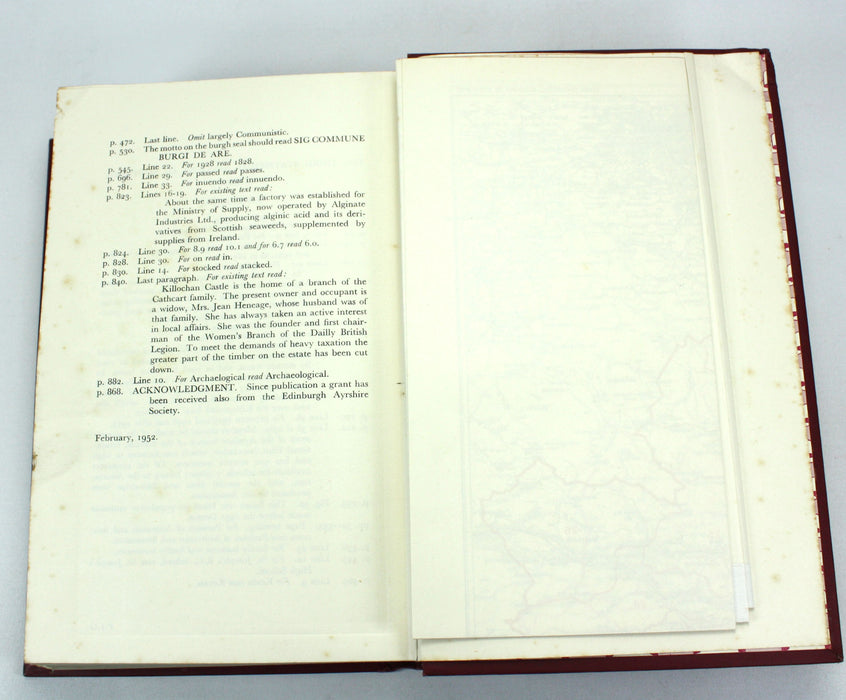 p. 472. Last line. Omit largely Communistic.
p. 530. The motto on the burgh seal should read SIG COMMUNE
BURGI DE ARE.
p. 545. Line 22. For 1928 read 1828.
p. 696. Line 29. For passed read passes.
p. 781. Line 33. For inuendo read innuendo.
p. 823. Lines 16-19. For existing text read:
About the same time a factory was established for
the Ministry of Supply, now operated by Alginate
Industries Ltd., producing alginic acid and its deri-
vatives from Scottish seaweeds, supplemented by
supplies from Ireland.
p. 824. Line 30. For 8.9 read 10.1 and for 6.7 read 6.0.
p. 828. Line 30. For on read in.
p. 830. Line 14. For stocked read stacked.
p. 840. Last paragraph. For existing text read:
Killochan Castle is the home of a branch of the
Cathcart family. The present owner and occupant is
a widow, Mrs. Jean Heneage, whose husband was of
that family. She has always taken an active interest
in local affairs. She was the founder and first chair-
man of the Women's Branch of the Dailly British
Legion. To meet the demands of heavy taxation the
greater part of the timber on the estate has been cut
down.
p. 882. Line 10. For Archaelogical read Archaeological.
p. 868. ACKNOWLEDGMENT. Since publication a grant has
been received also from the Edinburgh Ayrshire
Society.
February, 1952.